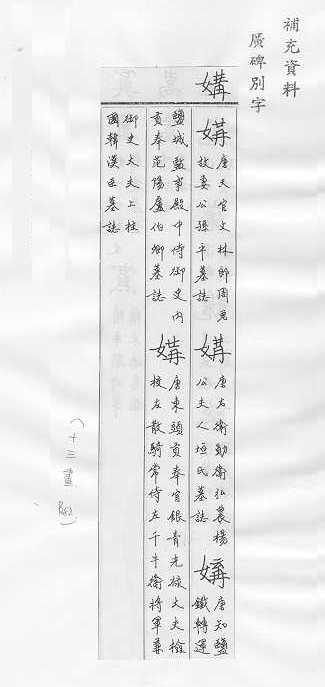 補充資料
廣碑別字
媾
媾 唐天官文林郎周
故妻公孫平墓誌
媾 唐左衛勳衛弘農楊
公夫人垣氏墓誌
媾 唐知鹽
鐵轉運
鹽城監事殿中侍御史內
供奉范陽盧伯卿墓誌
媾 唐東頭供奉官銀青光祿大夫檢
校左散騎常侍左千牛衛將軍兼
御史大夫上柱
國韓漢臣墓誌
(十三畫